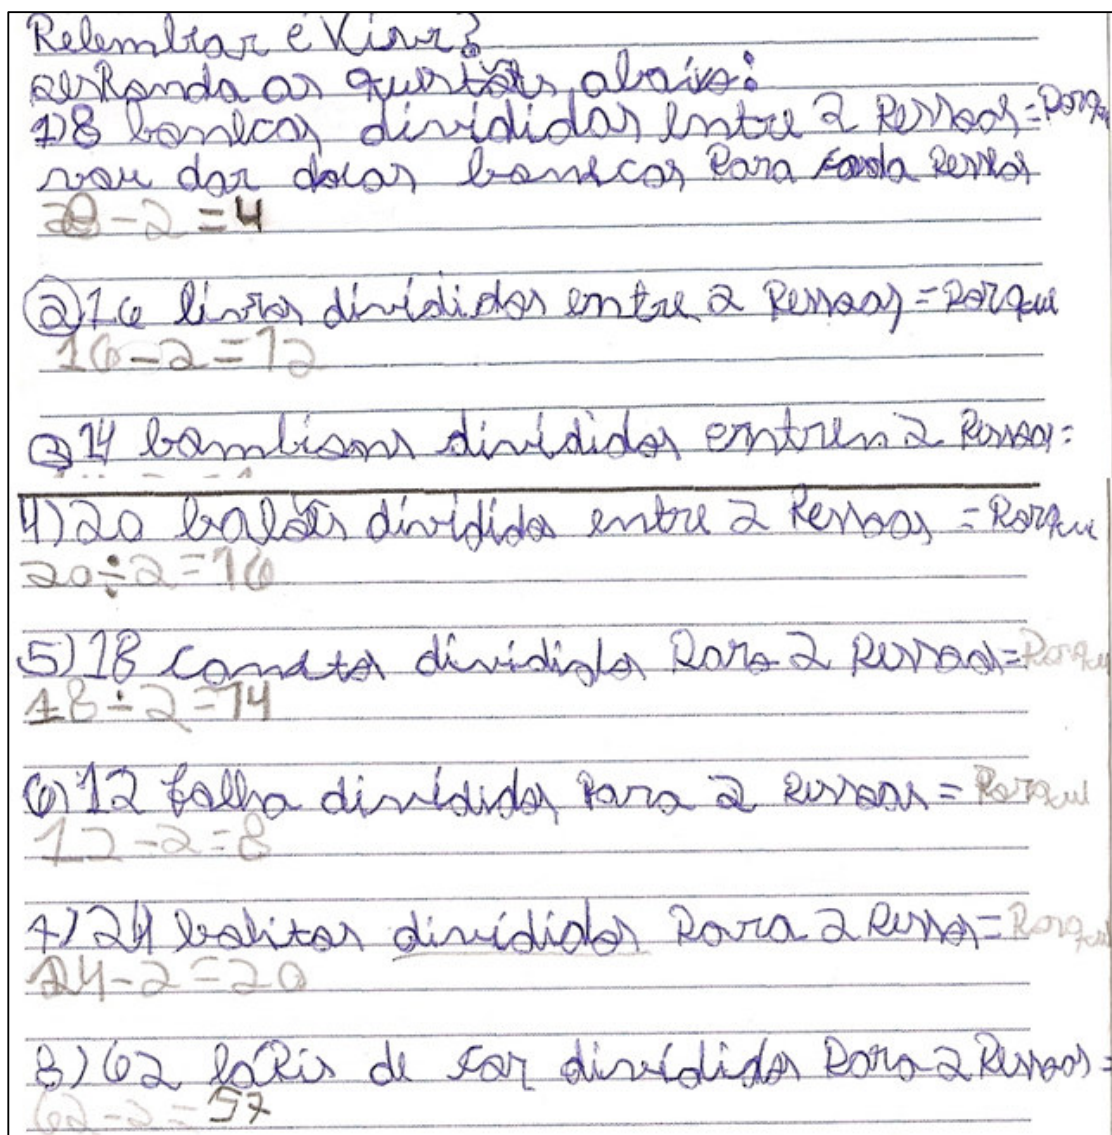 Relembrar é Viver?
Responda as questões abaixo:
1) 8 bonecas divididas entre 2 Pessoas = Porque
vou dar duas bonecas Para cada Pessoa
- 2 = 4
2) 16 livros divididos entre 2 Pessoas = Porque
16 - 2 = 12
3) 14 bombions divididos entren 2 Pessoas =
4) 20 balões divididos entre 2 Pessoas = Porque
20 ÷ 2 = 16
5) 18 divididos Para 2 Pessoas = Porque
18 ÷ 2 = 14
6) 12 folha divididos Para 2 Pessoas = Porque
12 - 2 = 8
7) 24 divididos Para 2 Pessoa = Porque
24 - 2 = 20
8) 62 láPis de cor divididos Para 2 Pessoas =
62 - 2 = 57